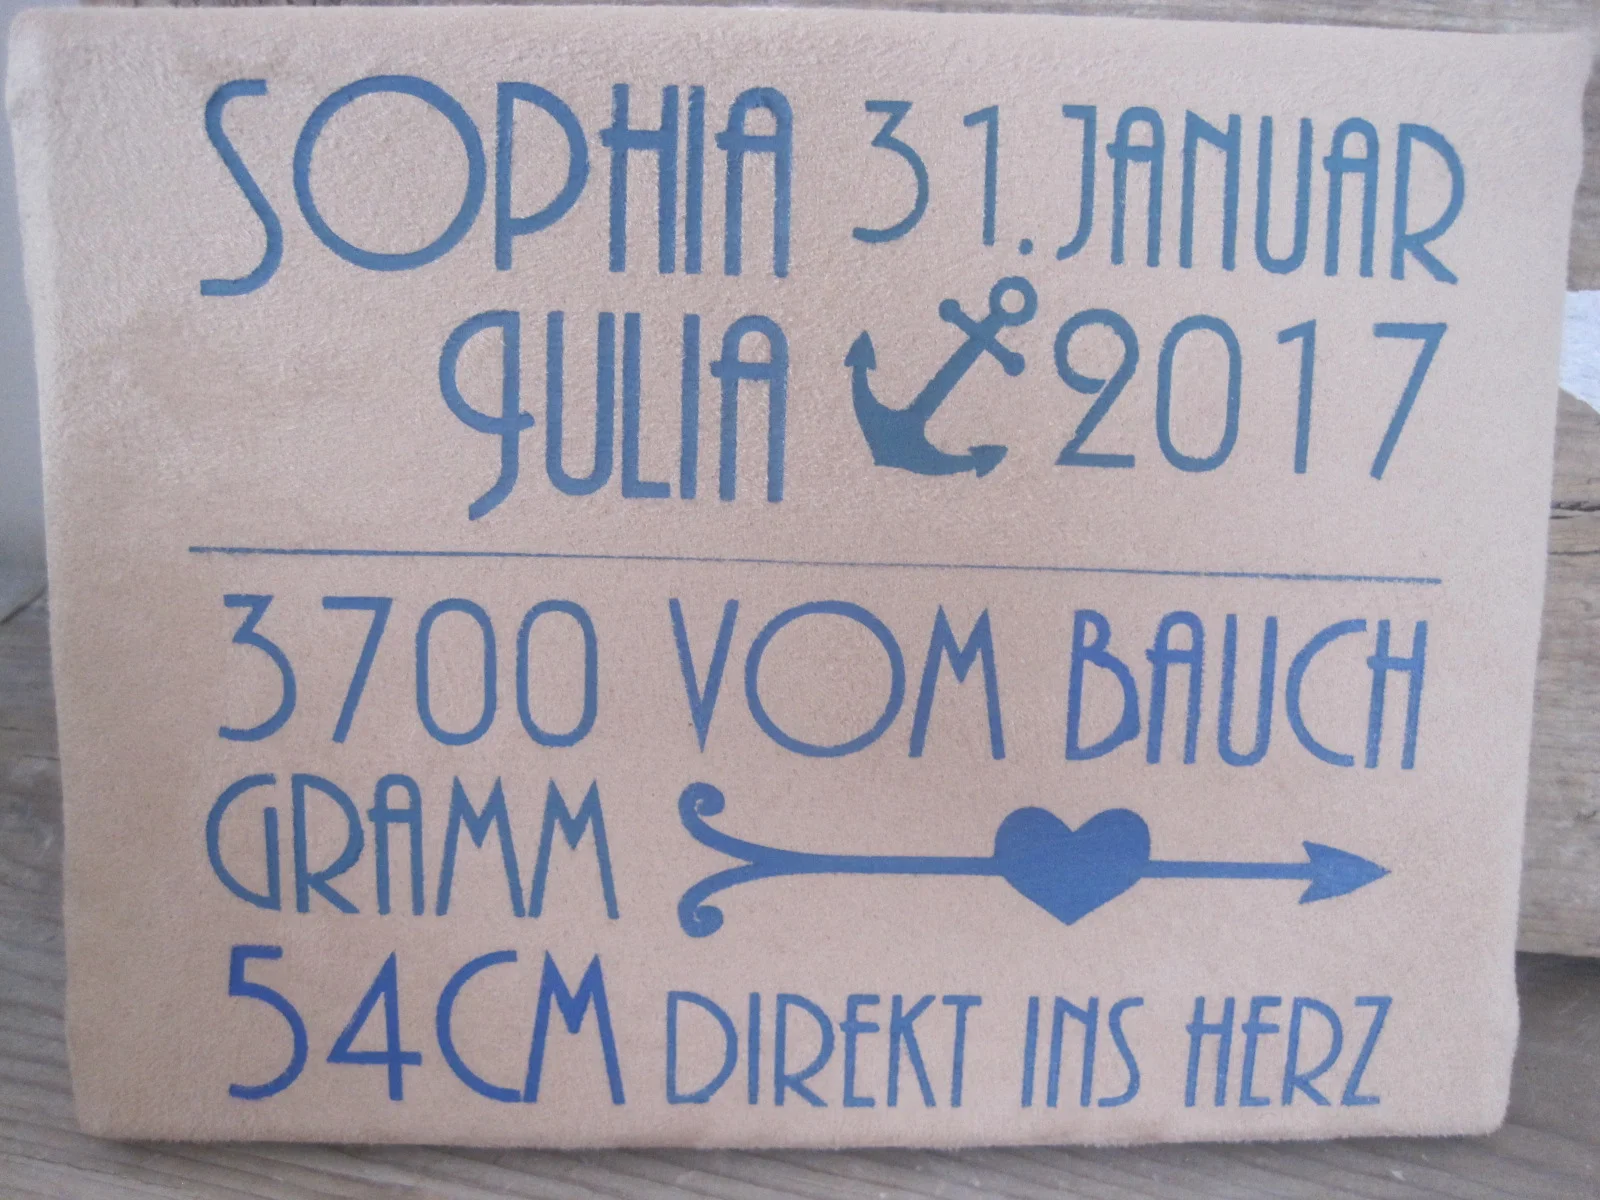 SOPHIA 31. JANUAR
JULIA 2017
3700 VOM BAUCH
GRAMM
54CM DIREKT INS HERZ